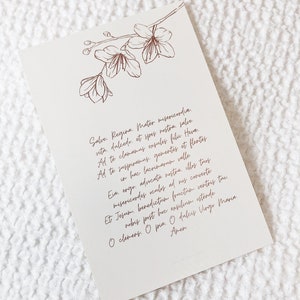 Salve Regina Mater misericordia
vita dulcedo et spes nostra salve
Ad te clamamus exsules filii Hevæ
Ad te suspiramus, gementes et flentes
in hac lacrimarum valle
Eia ergo, advocata nostra illos tuos
misericordes oculos ad nos converte
Et Jesum benedictum fructum ventris tui
nobis post hoc exsilium ostende
O clemens O pia O dulcis Virgo Maria
Amen